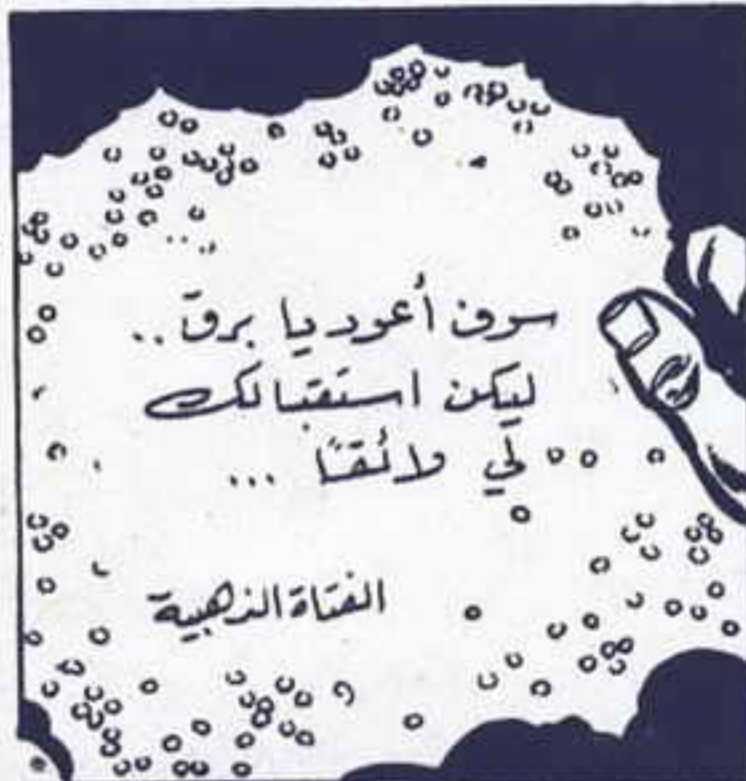 سوف أعود يا برق ..
ليكن استقبالك
لي لائقًا ...
الفتاة الذهبية